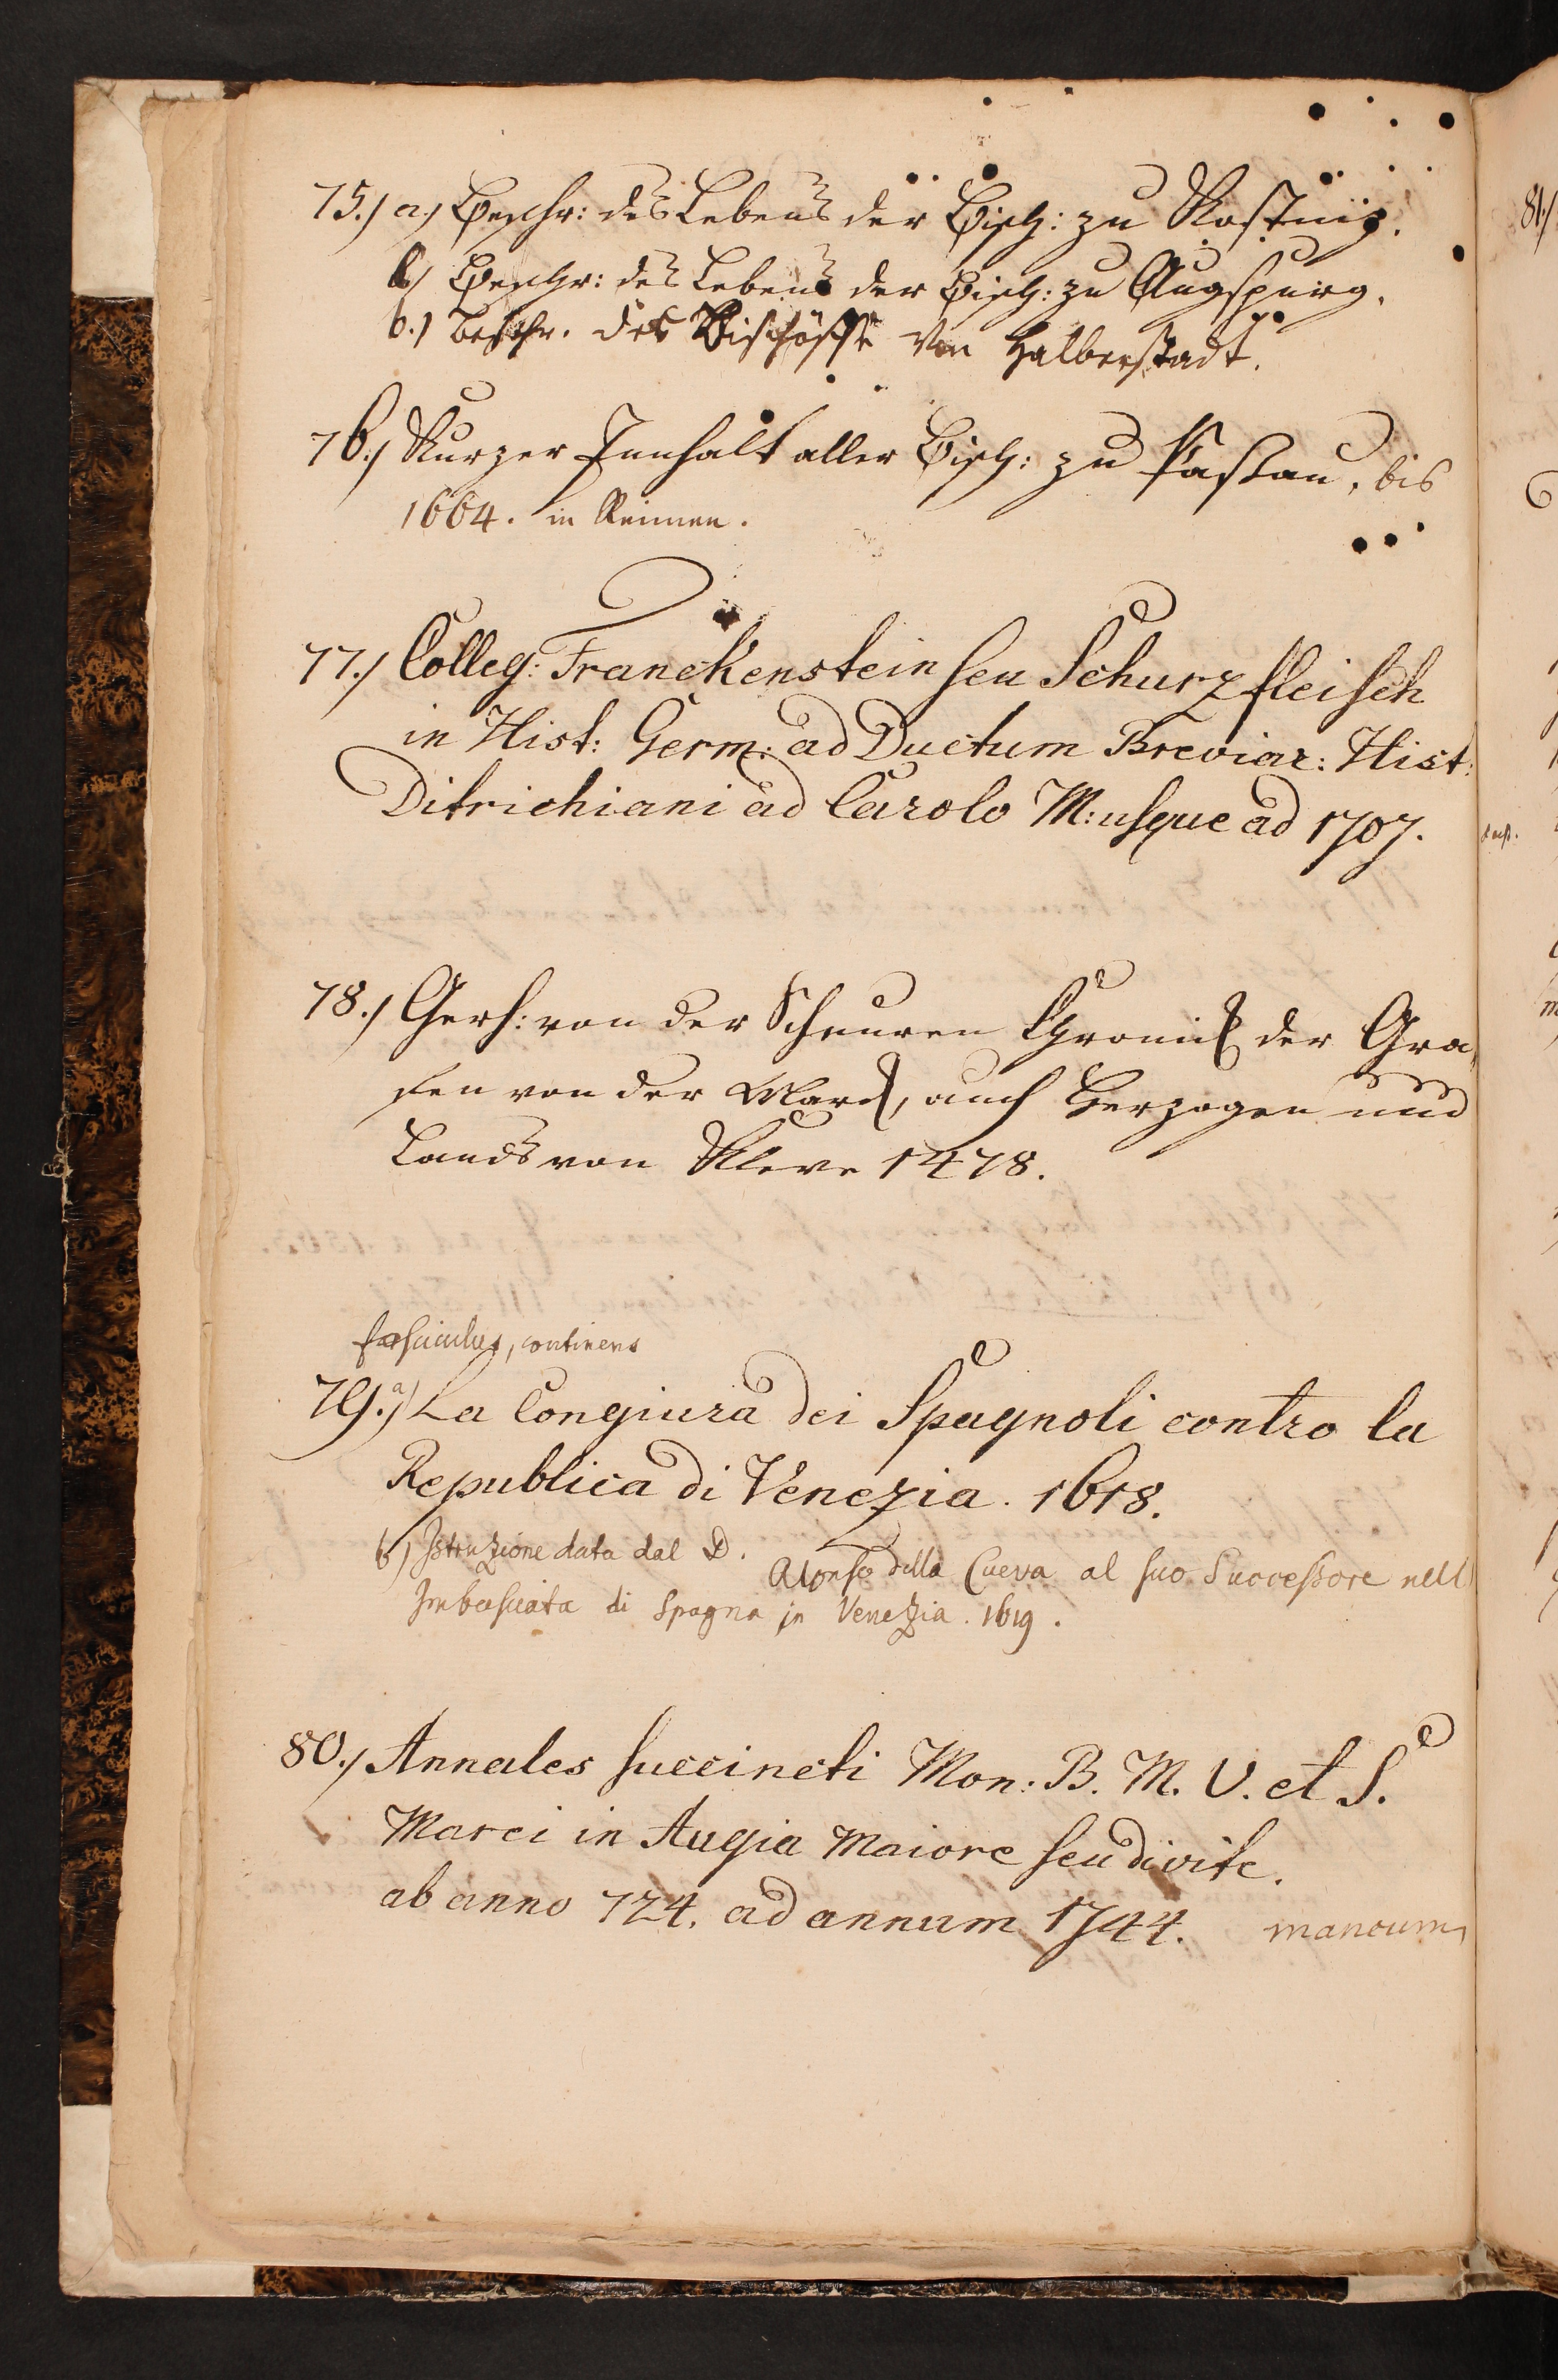 75.) a.) Beschr: des Lebens der Bisch: zu Kostniz.
b) Beschr: des Lebens der Bisch: zu Augspurg.
b.) Beschr. der Bischöffe von Halberstadt.
76.) Kurzer Innhalt aller Bisch: zu Passau, bis
1664. in Reimen.
77.) Colleg: Franckenstein seu Schurzfleisch
in Hist: Germ: ad Ductum Breviar: Hist:
Ditrichiani ad Carolo M: usque ad 1707.
78.) Gerh: von der Schuuren Chronick der Gra„
fen von der Marck, auch Herzogen und
Lands von Kleve 1478.
fasciculus, continens
79.a) La Congiura dei Spagnoli contro la
Republica di Venezia. 1618.
b) Istruzione data dal D. Alonso della Cueva al suo Successore nell
Imbasciata di Spagna in Venezia. 1619.
80.) Annales succincti Mon: B. M. V. et S.
Marci in Augia Maiore seu divite.
ab anno 724. ad annum 1744. mancum
81)